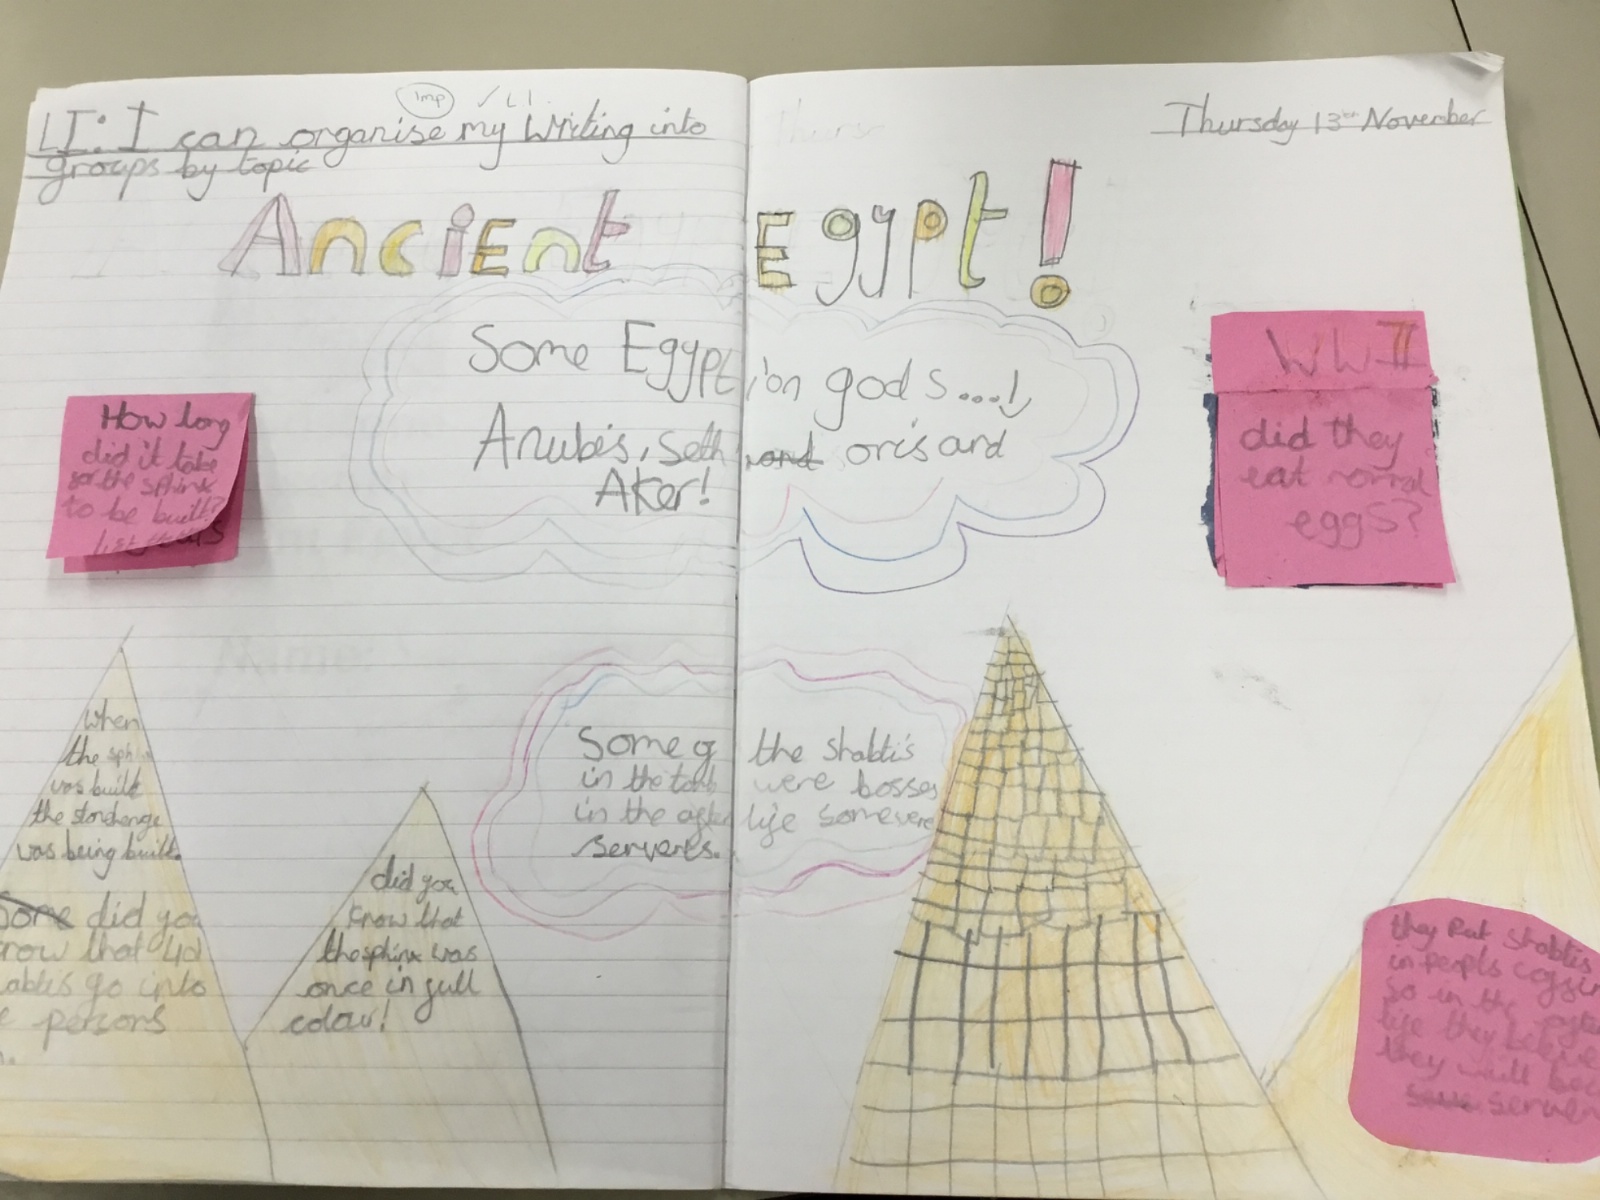 Imp ✓ LI
LI: I can organise my Writing into
groups by topic
Thurs
Thursday 13th November
Ancient Egypt!
Some Egyption gods....!
Anubis, Seth and oris and
Aker!
How long
did it take
for the sphinx
to be built?
WWII
did they
eat normal
eggs?
When
the sph
was built
the stonehenge
was being built.
Some did you
know that 40
go into
persons
did you
know that
the sphinx was
once in full
colour!
Some of the shabti's
in the tomb were bosses
in the after life some were
serverts.
they Put shabtis
in Peopls
so in the after
life they believe
they will